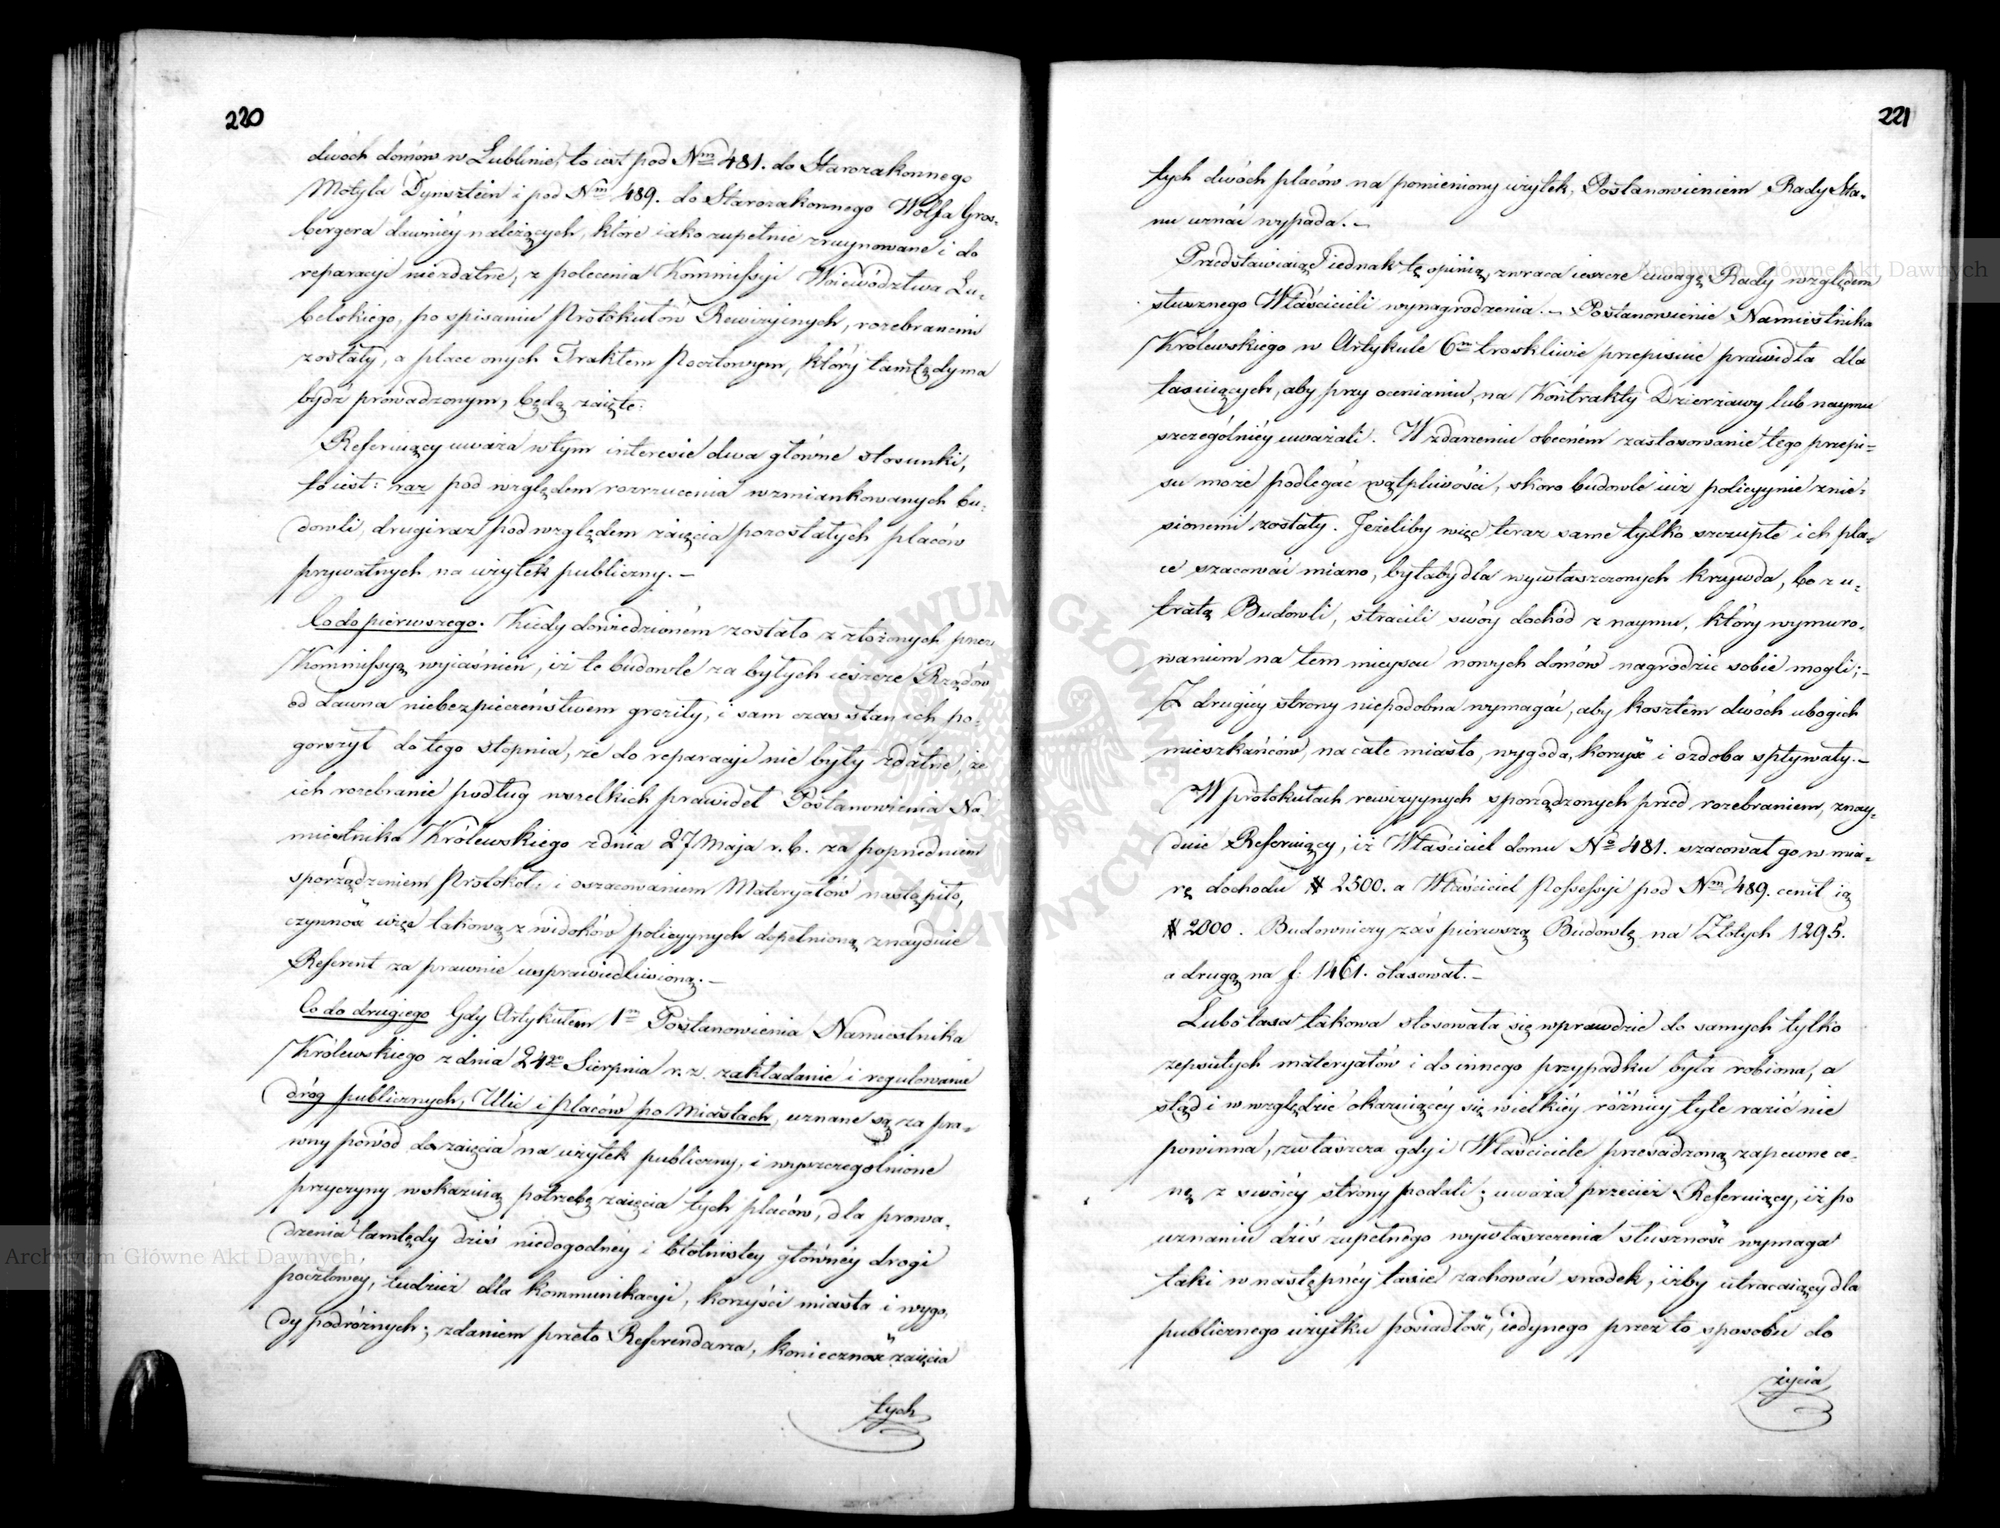 220
dwóch domów w Lublinie, to iest pod Nrm 481. do Starozakonnego
Motyla Dynsztein i pod Nrm 489. do Starozakonnego Wolfa Gros-
bergera dawniéy należących, które iako zupełnie zruynowane i do
reparacyi niezdatne, z polecenia Kommissyi Woiewództwa Lu-
belskiego, po spisaniu Protokułów Rewizyinych, rozebranemi
zostały, a place onych Traktem Pocztowym, który tamtędy ma
bydź prowadzonym, będą zaięte.
Referuiący uważa w tym interesie dwa główne stosunki,
to iest: raz pod względem rozrzucenia wzmiankowanych bu-
dowli, drugi raz pod względem zaięcia pozostałych placów
przywatnych na użytek publiczny. —
Co do pierwszego. Kiedy dowiedzioném zostało z złożonych przez
Kommissyą wyiaśnień, iż te budowle za byłych ieszcze Rządów
od dawna niebezpieczeństwem groziły, i sam czas stan ich po-
gorszył do tego stopnia, że do reparacyi nie były zdatne, że
ich rozebranie podług wszelkich prawideł Postanowienia Na-
miestnika Królewskiego z dnia 27 Maja r. b. za poprzedniem
sporządzeniem Protokół: i oszacowaniem Materyałów nastąpiło,
czynność więc takową z widoków policyynych dopełnioną znayduie
Referent za prawnie usprawiedliwioną. —
Co do drugiego Gdy Artykułem 1m Postanowienia Namiestnika
Królewskiego z dnia 24go Sierpnia r. z. zakładanie i regulowanie
dróg publicznych, Ulic i placów po Miastach, uznane są za pra-
wny powód do zaięcia na użytek publiczny, i wyszczególnione
przyczyny wskazuią potrzebę zaięcia tych placów, dla prowa-
dzenia tamtędy dziś niedogodney i błotnistey głównéy drogi
pocztowey, tudzież dla kommunikacyi, korzyści miasta i wygo-
dy podróżnych; zdaniem przeto Referendarza, konieczność zaięcia
tych
221
tych dwóch placów na pomieniony użytek, Postanowieniem Rady Sta-
nu uznać wypada. —
Przedstawiaiąc iednak tę opinią, zwraca ieszcze uwagę Rady względem
słusznego Właścicieli wynagrodzenia. — Postanowienie Namiestnika
Królewskiego w Artykule 6m troskliwie przepisuie prawidła dla
taxuiących, aby przy ocenianiu, na Kontrakty Dzierżawy lub naymu
szczególniéy uważali. W zdarzeniu obecném zastosowanie tego przepi-
su może podlegać wątpliwości, skoro budowle iuż policyynie znie-
sionemi zostały. Jeżeliby więc teraz same tylko szczupłe ich pla-
ce szacować miano, byłaby dla wywłaszczonych krzywda, bo z u-
tratą Budowli, stracili swóy dochód z naymu, który wymuro-
waniem na tem mieyscu nowych domów nagrodzić sobie mogli; —
Z drugiéy strony niepodobna wymagać, aby kosztem dwóch ubogich
mieszkańców, na całe miasto, wygoda, korzyść i ozdoba spływały. —
W protokułach rewizyynych sporządzonych przed rozebraniem, znay-
duie Referuiący, iż Właściciel domu No 481. szacował go w mia-
rę dochodu # 2500. a Właściciel Possessyi pod Nrm 489. cenił ią
# 2000. Budowniczy zaś pierwszą Budowlę na Złotych 1295.
a drugą na f: 1461. otaxował. —
Lubo taxa takowa stosowała się wprawdzie do samych tylko
zepsutych materyałów i do innego przypadku była robiona, a
stąd i w względzie okazuiącéy się wielkiéy różnicy tyle razić nie
powinna, zwłaszcza gdy i Właściciele przesadzoną zapewne ce-
nę z swoiéy strony podali; uważa przecież Referuiący, iż po
uznaniu dziś zupełnego wywłaszczenia słuszność wymaga
taki w następnéy taxie zachować srzodek, iżby utracaiący dla
publicznego użytku posiadłość, iedynego przez to sposobu do
życia
Archiwum Główne Akt Dawnych
Archiwum Główne Akt Dawnych
ARCHIWUM GŁÓWNE AKT DAWNYCH